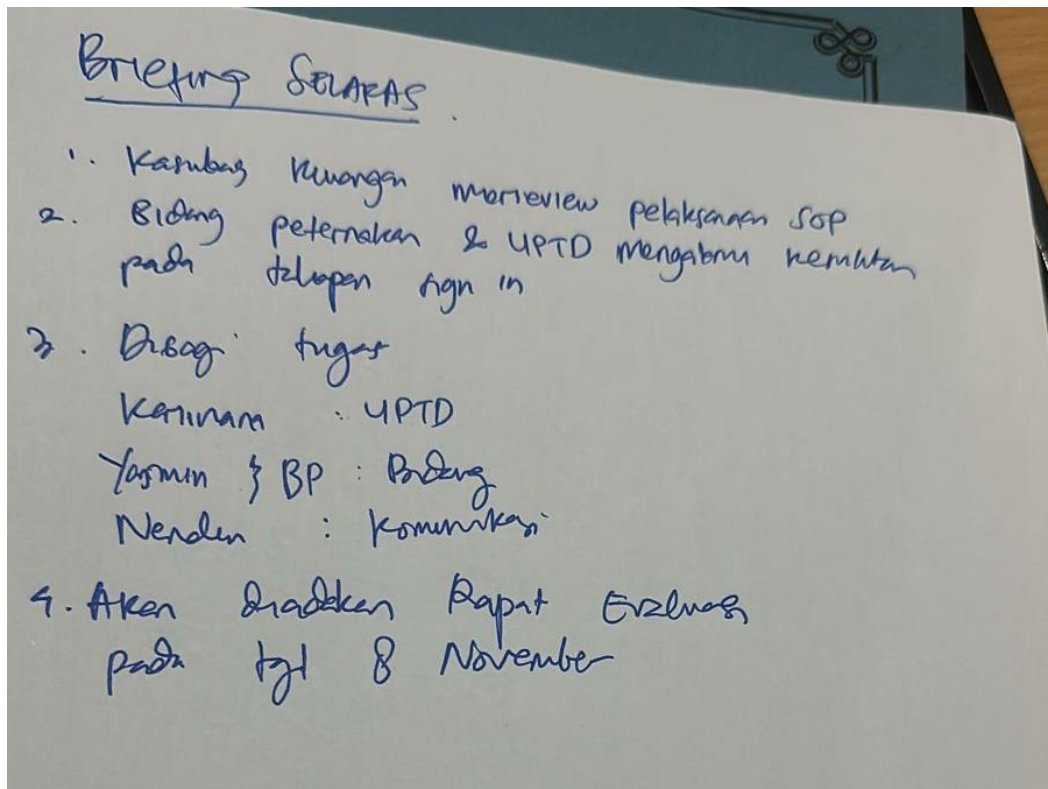 Briefing SELARAS.
1. Kasubag Keuangan mereview pelaksanaan SOP
2. Bidang peternakan & UPTD mengalami kesulitan
pada tahapan sign in
3. Dibagi tugas
: UPTD
Yasmin } BP : Bidang
Nenden : Komunikasi
4. Akan diadakan Rapat Evaluasi
pada tgl 8 November